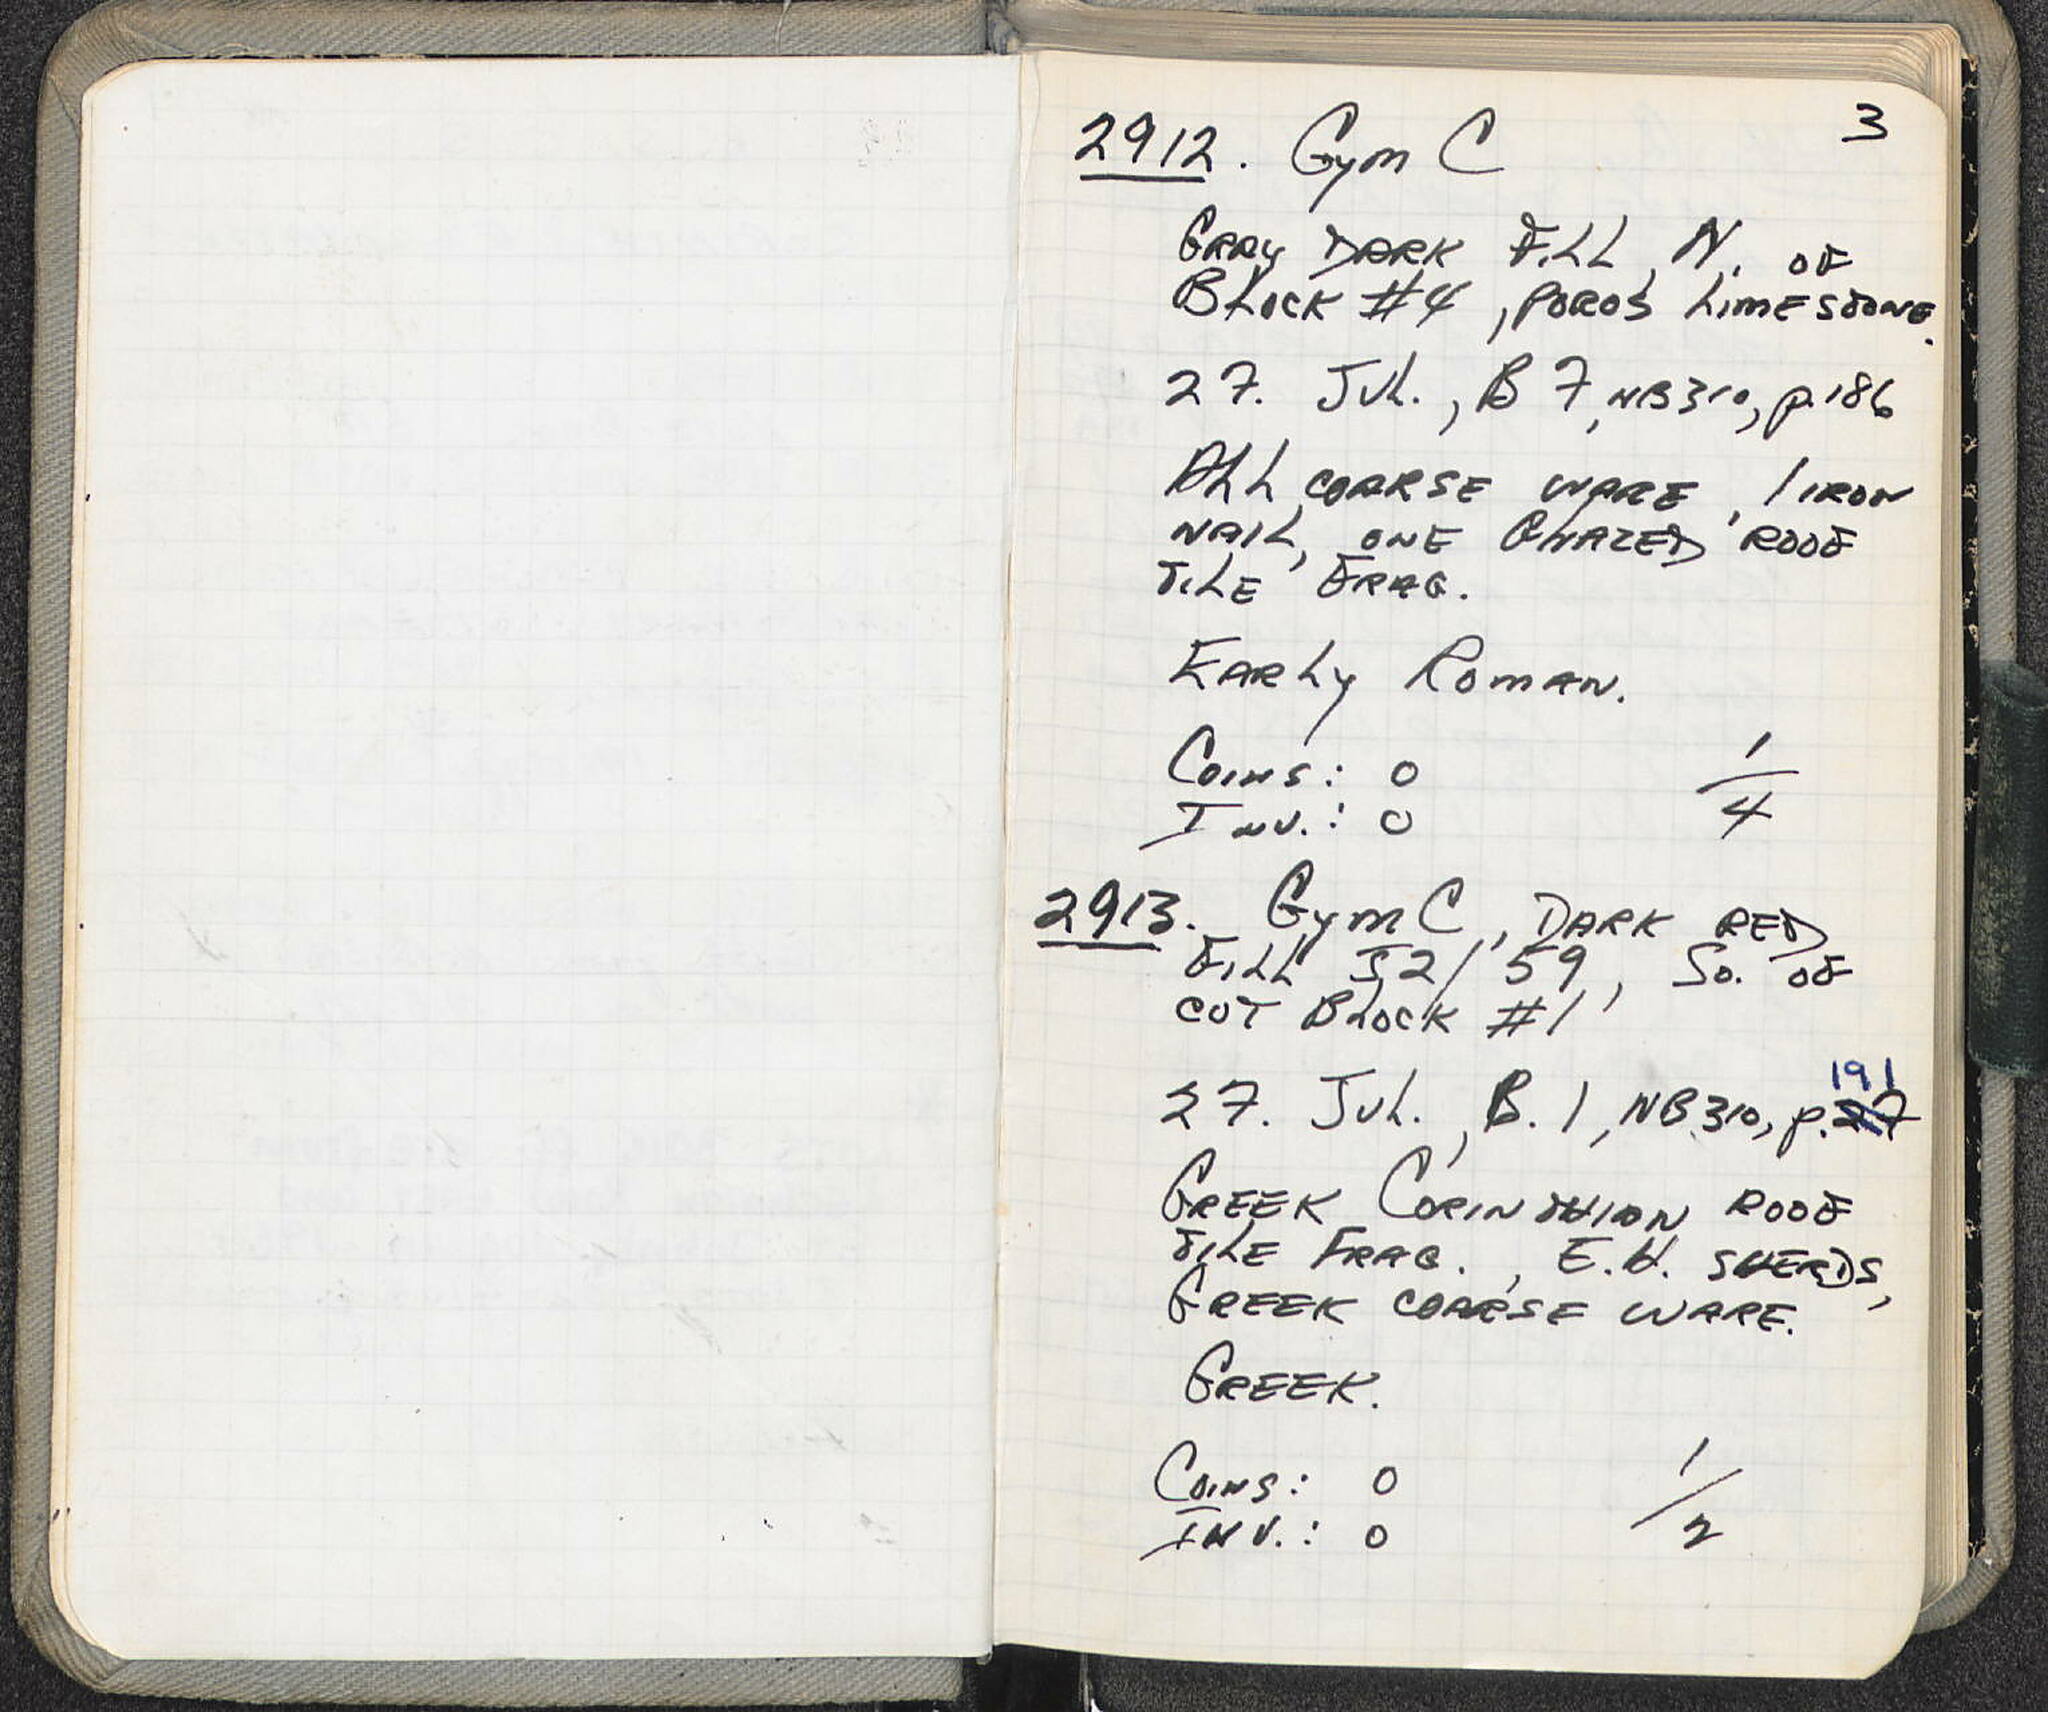 3
2912. Gym C
Gray Dark Fill, N. of
Block #4, poros limestone.
27. Jul., B 7, NB 310, p. 186
All coarse ware, 1 iron
nail, one glazed roof
tile frag.
Early Roman.
Coins: 0 1/4
Inv.: 0
2913. Gym C, Dark red
fill 52/59, So. of
cut Block #1
191
27. Jul., B. 1, NB 310, p. 27
Greek Corinthian roof
tile frag., E.H. sherds,
Greek coarse ware.
Greek.
Coins: 0 1/2
Inv.: 0